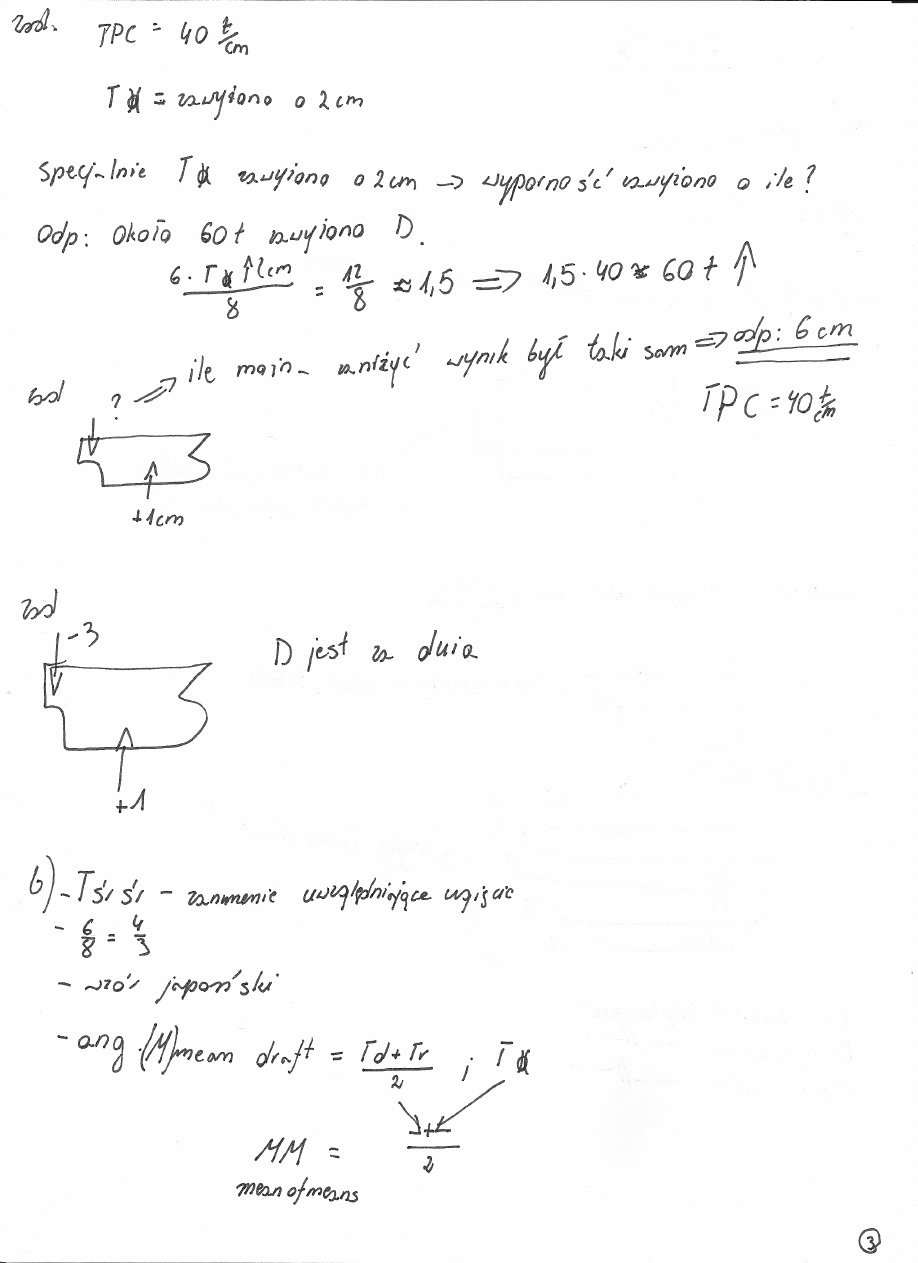 zad. TPC = 40 t/cm
T⦻ = zawyżono o 2 cm
Specjalnie T⦻ zawyżono o 2cm → wyporność zawyżono o ile?
Odp: Około 60 t zawyżono D.
6 · T⦻ ↑2cm / 8 = 12/8 ≈ 1,5 => 1,5 · 40 ≈ 60 t ↑
zad ? => ile można zaniżyć wynik był taki sam => odp: 6 cm
TPC = 40 t/cm
+1cm
zad
-3
D jest za duża
+1
b) - Tśr śr - zanurzenie uwzględniające ugięcie
- 6/8 = 4/3
- wzór japoński
- ang. (M) mean draft = Td + Tr / 2 ; T⦻
MM = + / 2
mean of means
3